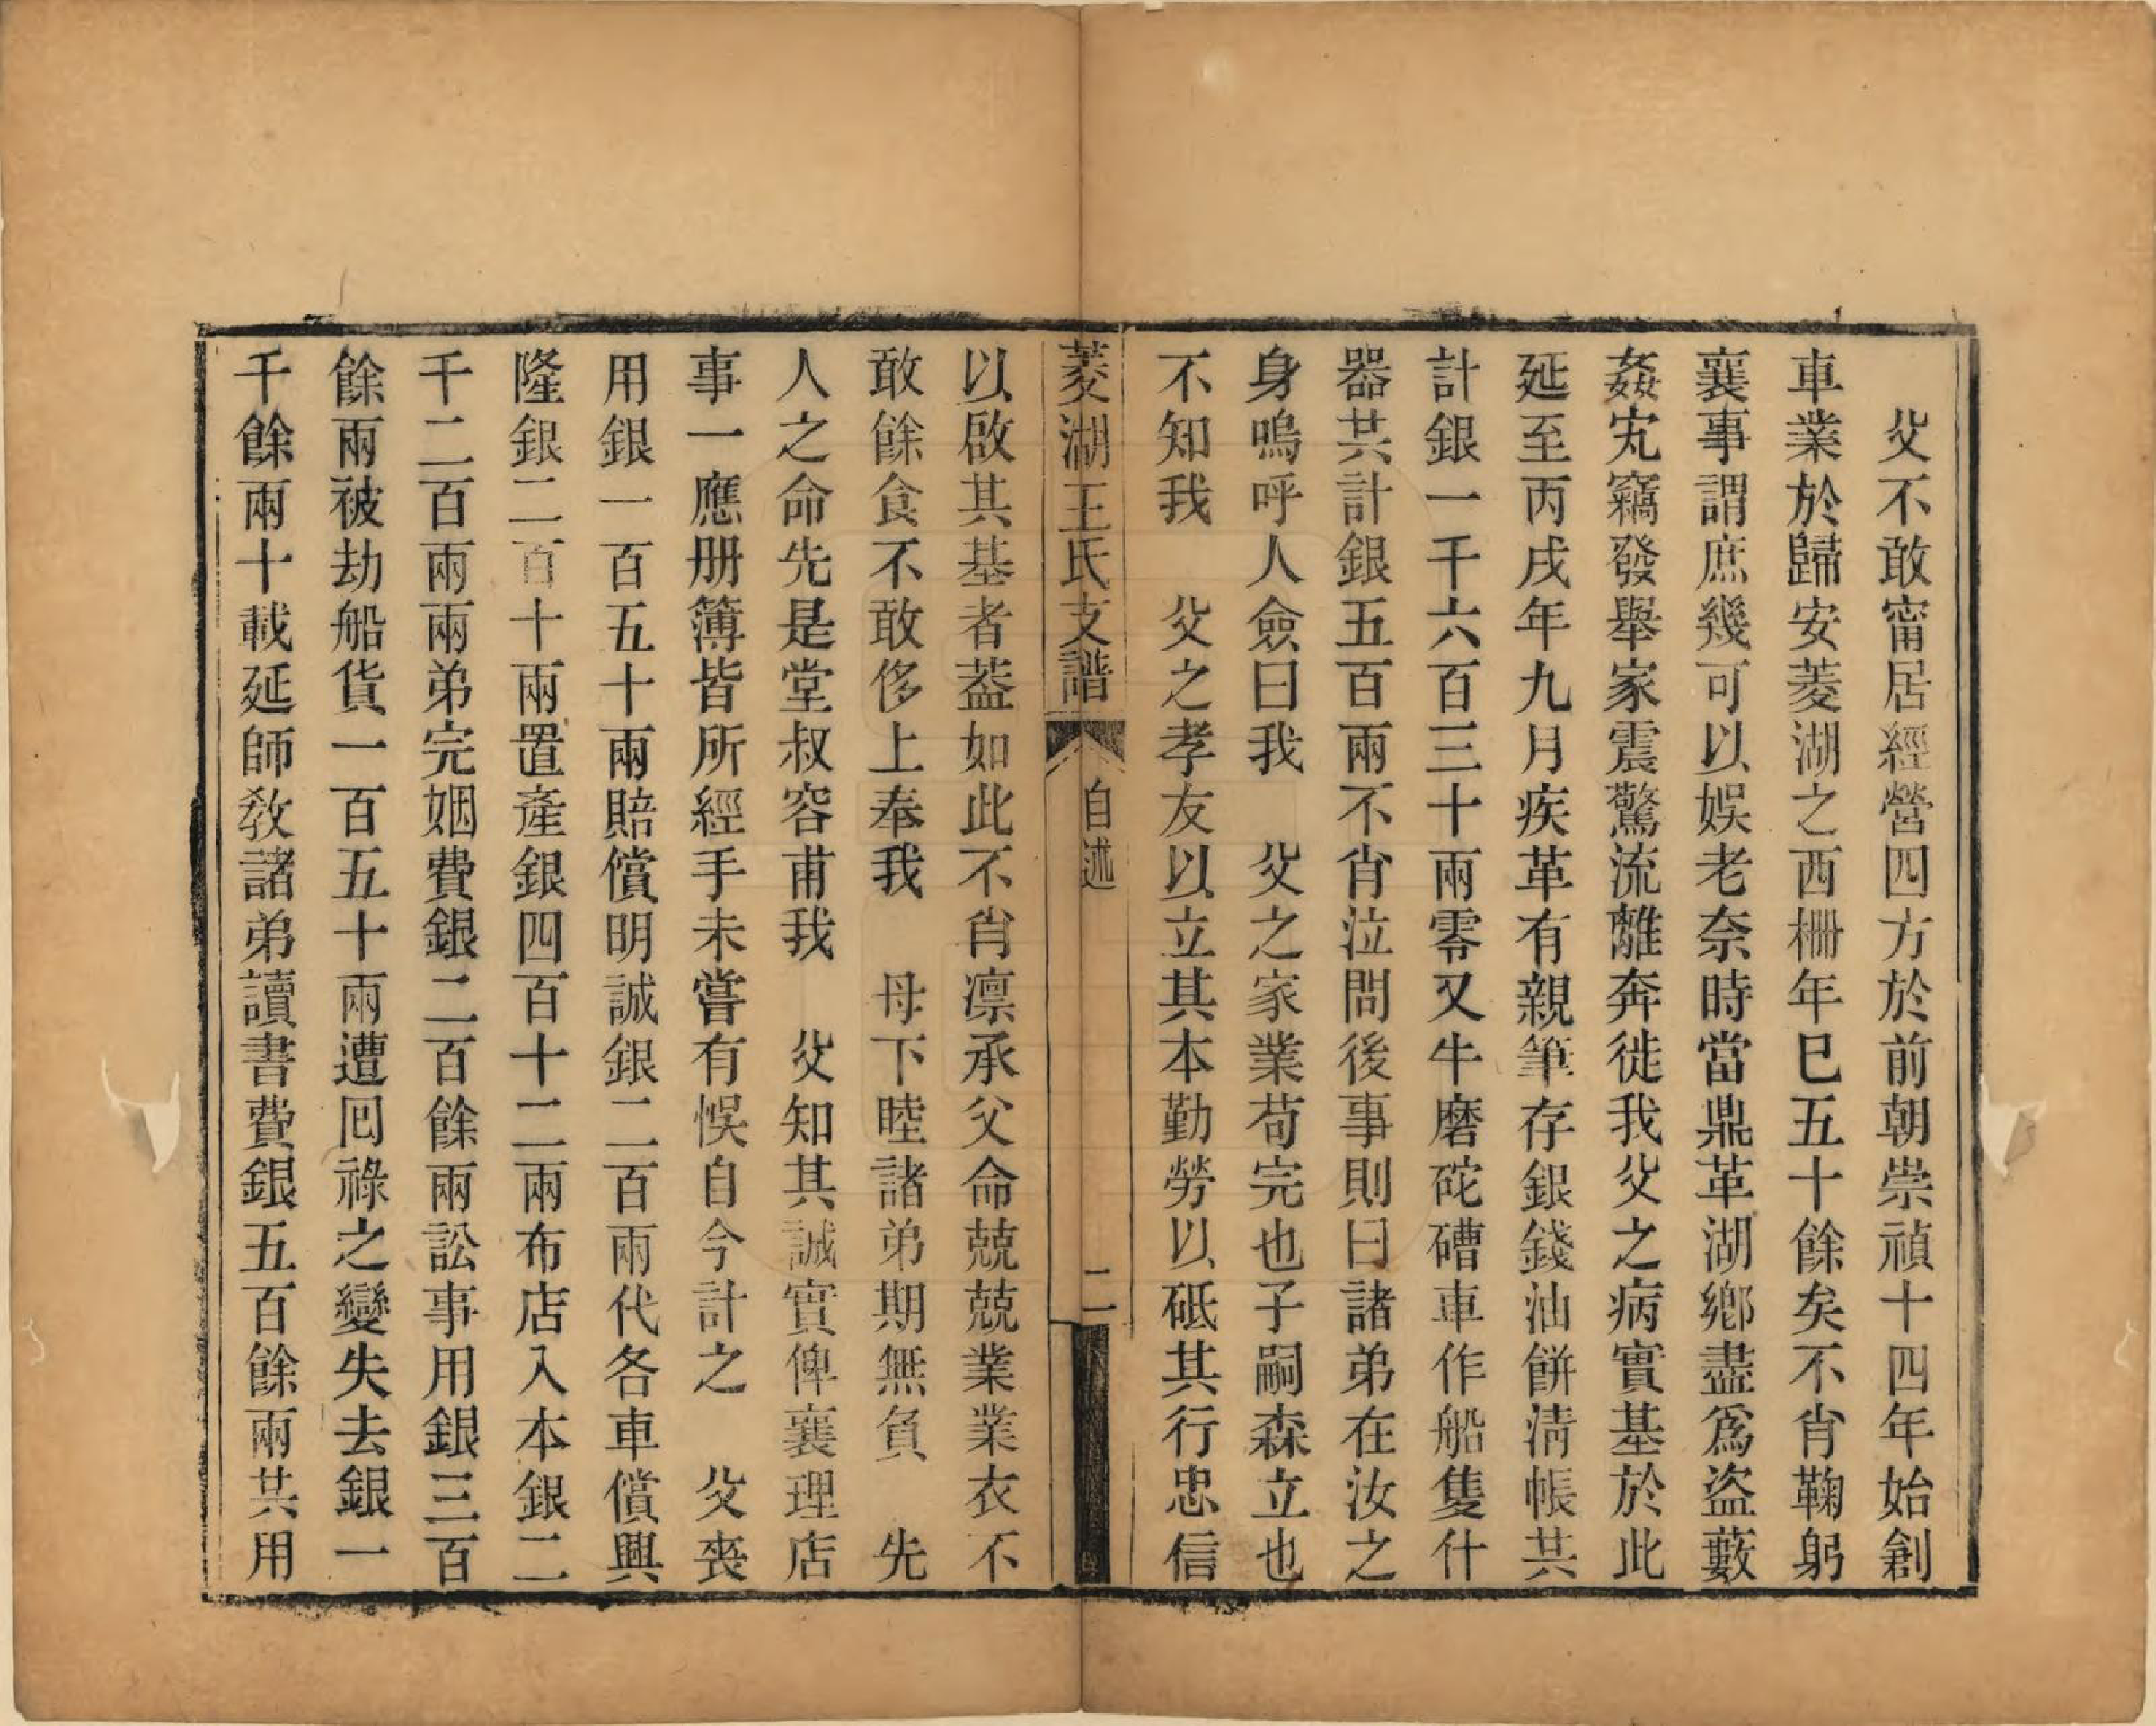 父不敢甯居經營四方於前朝崇禎十四年始創
車業於歸安菱湖之西柵年巳五十餘矣不肖鞠躬
襄事謂庶幾可以娛老奈時當鼎革湖鄉盡爲盜藪
姦宄竊發舉家震驚流離奔徙我父之病實基於此
延至丙戌年九月疾革有親筆存銀錢油餅清帳共
計銀一千六百三十兩零又牛磨砣磟車作船隻什
器共計銀五百兩不肖泣問後事則曰諸弟在汝之
身嗚呼人僉曰我 父之家業苟完也子嗣森立也
不知我 父之孝友以立其本勤勞以砥其行忠信
菱湖王氏支譜 自述 二
以啟其基者葢如此不肖凛承父命兢兢業業衣不
敢餘食不敢侈上奉我 母下睦諸弟期無負 先
人之命先是堂叔容甫我 父知其誠實俾襄理店
事一應册簿皆所經手未嘗有悞自今計之 父喪
用銀一百五十兩賠償明誠銀二百兩代各車償興
隆銀二百十兩置產銀四百十二兩布店入本銀二
千二百兩兩弟完姻費銀二百餘兩訟事用銀三百
餘兩被劫船貨一百五十兩遭囘祿之變失去銀一
千餘兩十載延師教諸弟讀書費銀五百餘兩共用